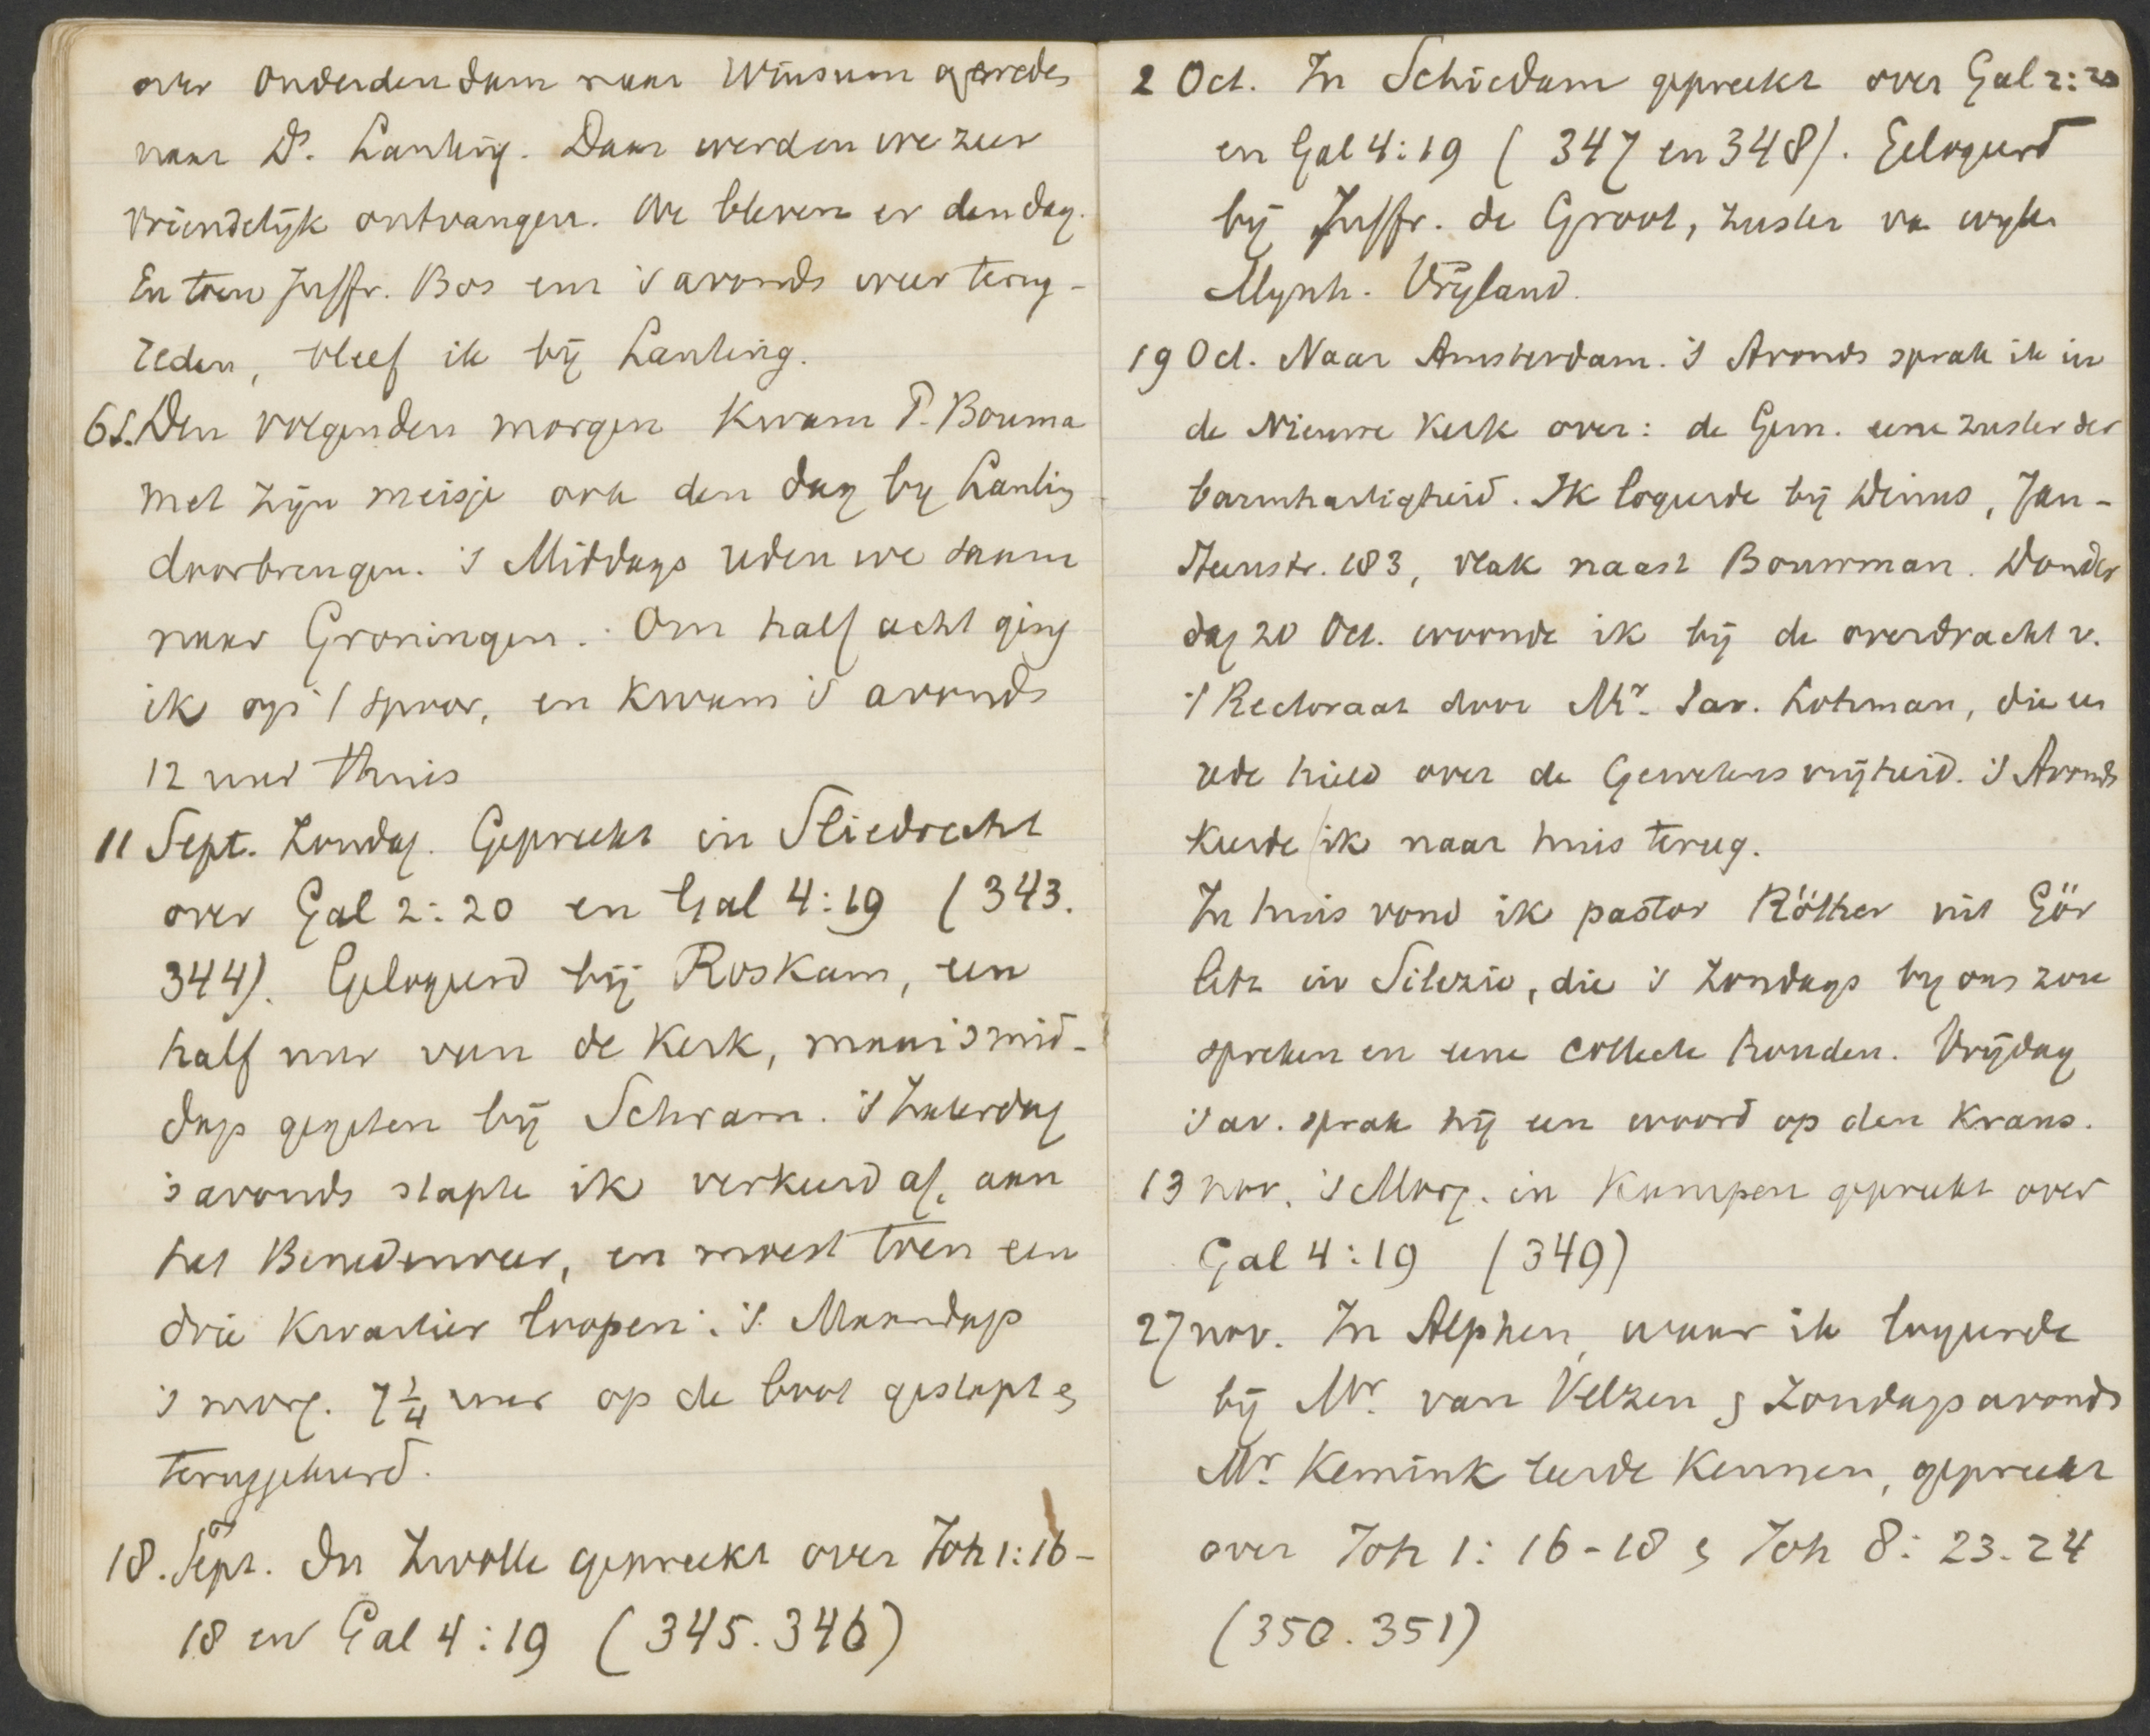 over Onderdendam naar Winsum gereden
naar Ds. Lanting. Daar werden we zeer
vriendelijk ontvangen. We bleven er den dag.
En toen Juffr. Bos en 's avonds weer terug-
reden, bleef ik bij Lanting.
6 S. Den volgenden morgen kwam P. Bouma
met zijn meisje ook den dag by Lanting
doorbrengen. 's Middags reden we samen
naar Groningen. Om half acht ging
ik op 't spoor, en kwam 's avonds
12 uur thuis
11 Sept. Zondag. Gepreekt in Sliedrecht
over Gal 2:20 en Gal 4:19 (343.
344). Gelogeerd bij Roskam, een
half uur van de Kerk, maar 's mid-
dags gegeten bij Schram. 's Zaterdag
's avonds stapte ik verkeerd af, aan
het Benedenveer, en moest toen een
drie kwartier loopen. 's Maandags
's morg. 7 1/4 uur op de boot gestapt &
teruggekeerd.
18. Sept. In Zwolle gepreekt over Joh 1:16-
18 en Gal 4:19 (345.346)
2 Oct. In Schiedam gepreekt over Gal 2:20
en Gal 4:19 (347 en 348). Gelogeerd
bij Juffr. de Groot, zuster va wyle
Mynh. Vrijland.
19 Oct. Naar Amsterdam. 's Avonds sprak ik in
de Nieuwe Kerk over: de Gem. eene zuster der
barmhartigheid. Ik logeerde bij Wims, Jan-
Steenstr. 183, vlak naast Bouwman. Donder
dag 20 Oct. woonde ik bij de overdracht v.
't Rectoraat door Mr. Sav. Lohman, die een
rede hield over de Gewetensvrijheid. 's Avonds
keerde ik naar huis terug.
In huis vond ik pastor Röther uit Gör
litz in Silezie, die 's Zondags by ons zou
spreken en eene collecte houden. Vrijdag
's av. sprak hij een woord op den Krans.
13 nov. 's Morg. in Kampen gepreekt over
Gal 4:19 (349)
27 nov. In Alphen, waar ik logeerde
bij Mr. van Velzen & Zondagsavonds
Mr. Kemink leerde kennen, gepreekt
over Joh 1:16-18 & Joh 8:23.24
(350.351)